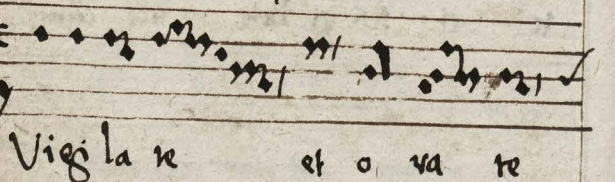 Vigi la te et o ra te